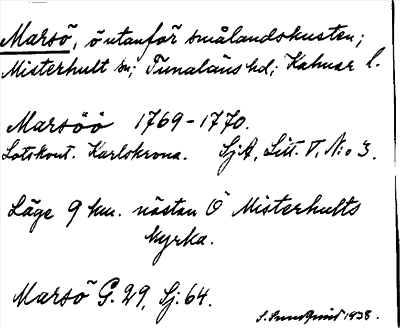 Marsö, ö utanför smålandskusten;
Misterhult sn; Tunaläns hd; Kalmar l.
Marsöö 1769-1770.
Lotskont. Karlskrona. SjA, Litt. V, No 3.
Läge 9 km. nästan Ö Misterhults
kyrka.
Marsö G. 29, Sj. 64.
1938.